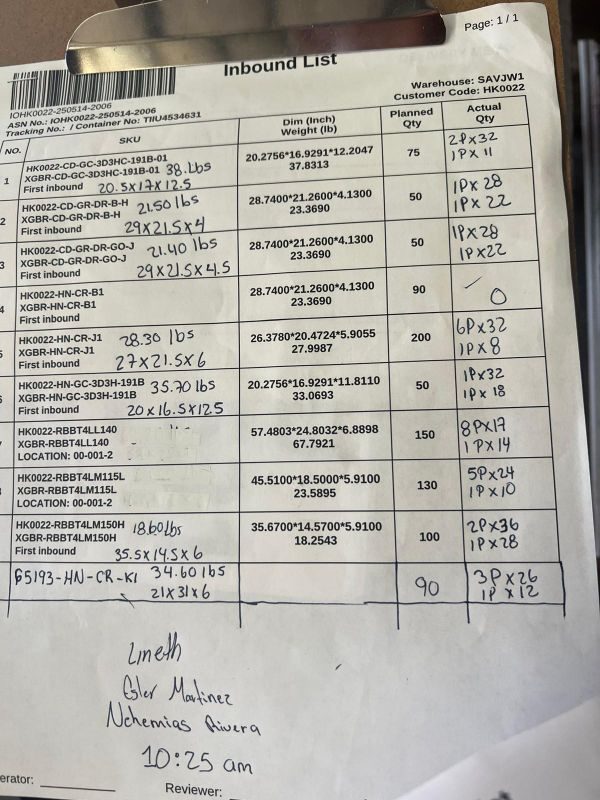 Page: 1 / 1
Inbound List
IOHK0022-250514-2006
ASN No.: IOHK0022-250514-2006
Tracking No.: / Container No: TIIU4534631
Warehouse: SAVJW1
Customer Code: HK0022
NO. SKU Dim (Inch) Weight (lb) Planned Qty Actual Qty
1 HK0022-CD-GC-3D3HC-191B-01 20.2756*16.9291*12.2047 75 2Px32
XGBR-CD-GC-3D3HC-191B-01 38.lbs 37.8313 1Px11
First inbound 20.5x17x12.5
2 HK0022-CD-GR-DR-B-H 21.50 lbs 28.7400*21.2600*4.1300 50 1Px28
XGBR-CD-GR-DR-B-H 23.3690 1Px22
First inbound 29x21.5x4
3 HK0022-CD-GR-DR-GO-J 21.40 lbs 28.7400*21.2600*4.1300 50 1Px28
XGBR-CD-GR-DR-GO-J 23.3690 1Px22
First inbound 29x21.5x4.5
4 HK0022-HN-CR-B1 28.7400*21.2600*4.1300 90 0
XGBR-HN-CR-B1 23.3690
First inbound
5 HK0022-HN-CR-J1 28.30 lbs 26.3780*20.4724*5.9055 200 6Px32
XGBR-HN-CR-J1 27.9987 1Px8
First inbound 27x21.5x6
6 HK0022-HN-GC-3D3H-191B 35.70 lbs 20.2756*16.9291*11.8110 50 1Px32
XGBR-HN-GC-3D3H-191B 33.0693 1Px18
First inbound 20x16.5x12.5
HK0022-RBBT4LL140 57.4803*24.8032*6.8898 150 8Px17
XGBR-RBBT4LL140 67.7921 1Px14
LOCATION: 00-001-2
HK0022-RBBT4LM115L 45.5100*18.5000*5.9100 130 5Px24
XGBR-RBBT4LM115L 23.5895 1Px10
LOCATION: 00-001-2
HK0022-RBBT4LM150H 18.60lbs 35.6700*14.5700*5.9100 100 2Px36
XGBR-RBBT4LM150H 18.2543 1Px28
First inbound 35.5x14.5x6
65193-HN-CR-K1 34.60 lbs 90 3Px26
21x31x6 1Px12
Lineth
Esler Martinez
Nehemias Rivera
10:25 am
erator:
Reviewer: